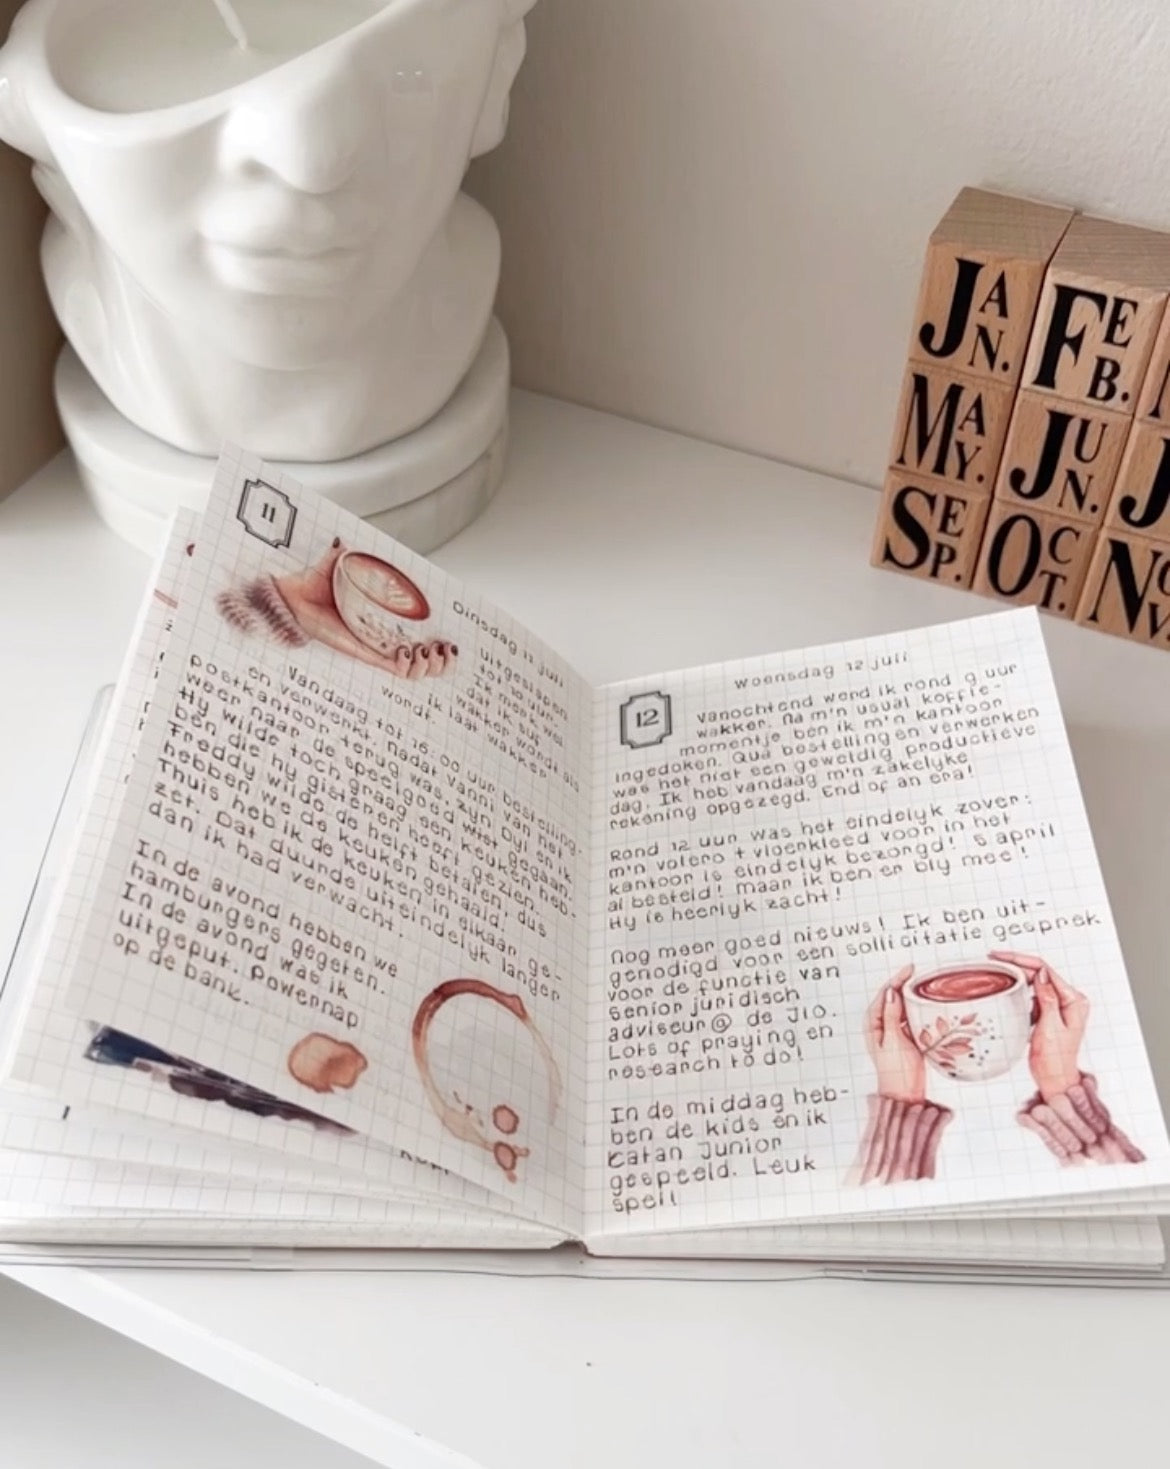 11
Dinsdag 11 juli
uitgeslapen
tot 10 uur.
Ik merk
dat ik snel
wakker wordt als
ik laat wakker
wordt.
Vandaag tot 16:00 uur bestelling-
en verwerkt. Nadat Yanni van het
postkantoor terug was, zijn Dyl en ik
weer naar de speelgoed wiet gegaan.
Hy wilde toch graag een keuken heb-
ben die hy gisteren heeft gezien.
Freddy wilde de helft betalen, dus
hebben we de keuken gehaald.
Thuis heb ik de keuken in elkaar ge-
zet. Dat duurde uiteindelyk langer
dan ik had verwacht.
In de avond hebben we
hamburgers gegeten.
In de avond was ik
uitgeput. Powernap
op de bank.
woensdag 12 juli
12
Vanochtend werd ik rond 9 uur
wakker. Na m'n usual koffie-
momentje ben ik m'n kantoor
ingedoken. Qua bestellingen verwerken
was het niet een geweldig productieve
dag. Ik heb vandaag m'n zakelyke
rekening opgezegd. End of an era!
Rond 12 uur was het eindelyk zover:
m'n velero + vloerkleed voor in het
kantoor is eindelyk bezorgd! 5 april
al besteld! maar ik ben er bly mee!
Hy is heerlyk zacht!
Nog meer goed nieuws! Ik ben uit-
genodigd voor een sollicitatie gesprek
voor de functie van
Senior juridisch
adviseur @ de JIO.
Lots of praying en
research to do!
In de middag heb-
ben de kids en ik
Catan Junior
gespeeld. Leuk
spel!
JAN.
FEB.
MAY.
JUN.
J
SEP.
OCT.
NOV